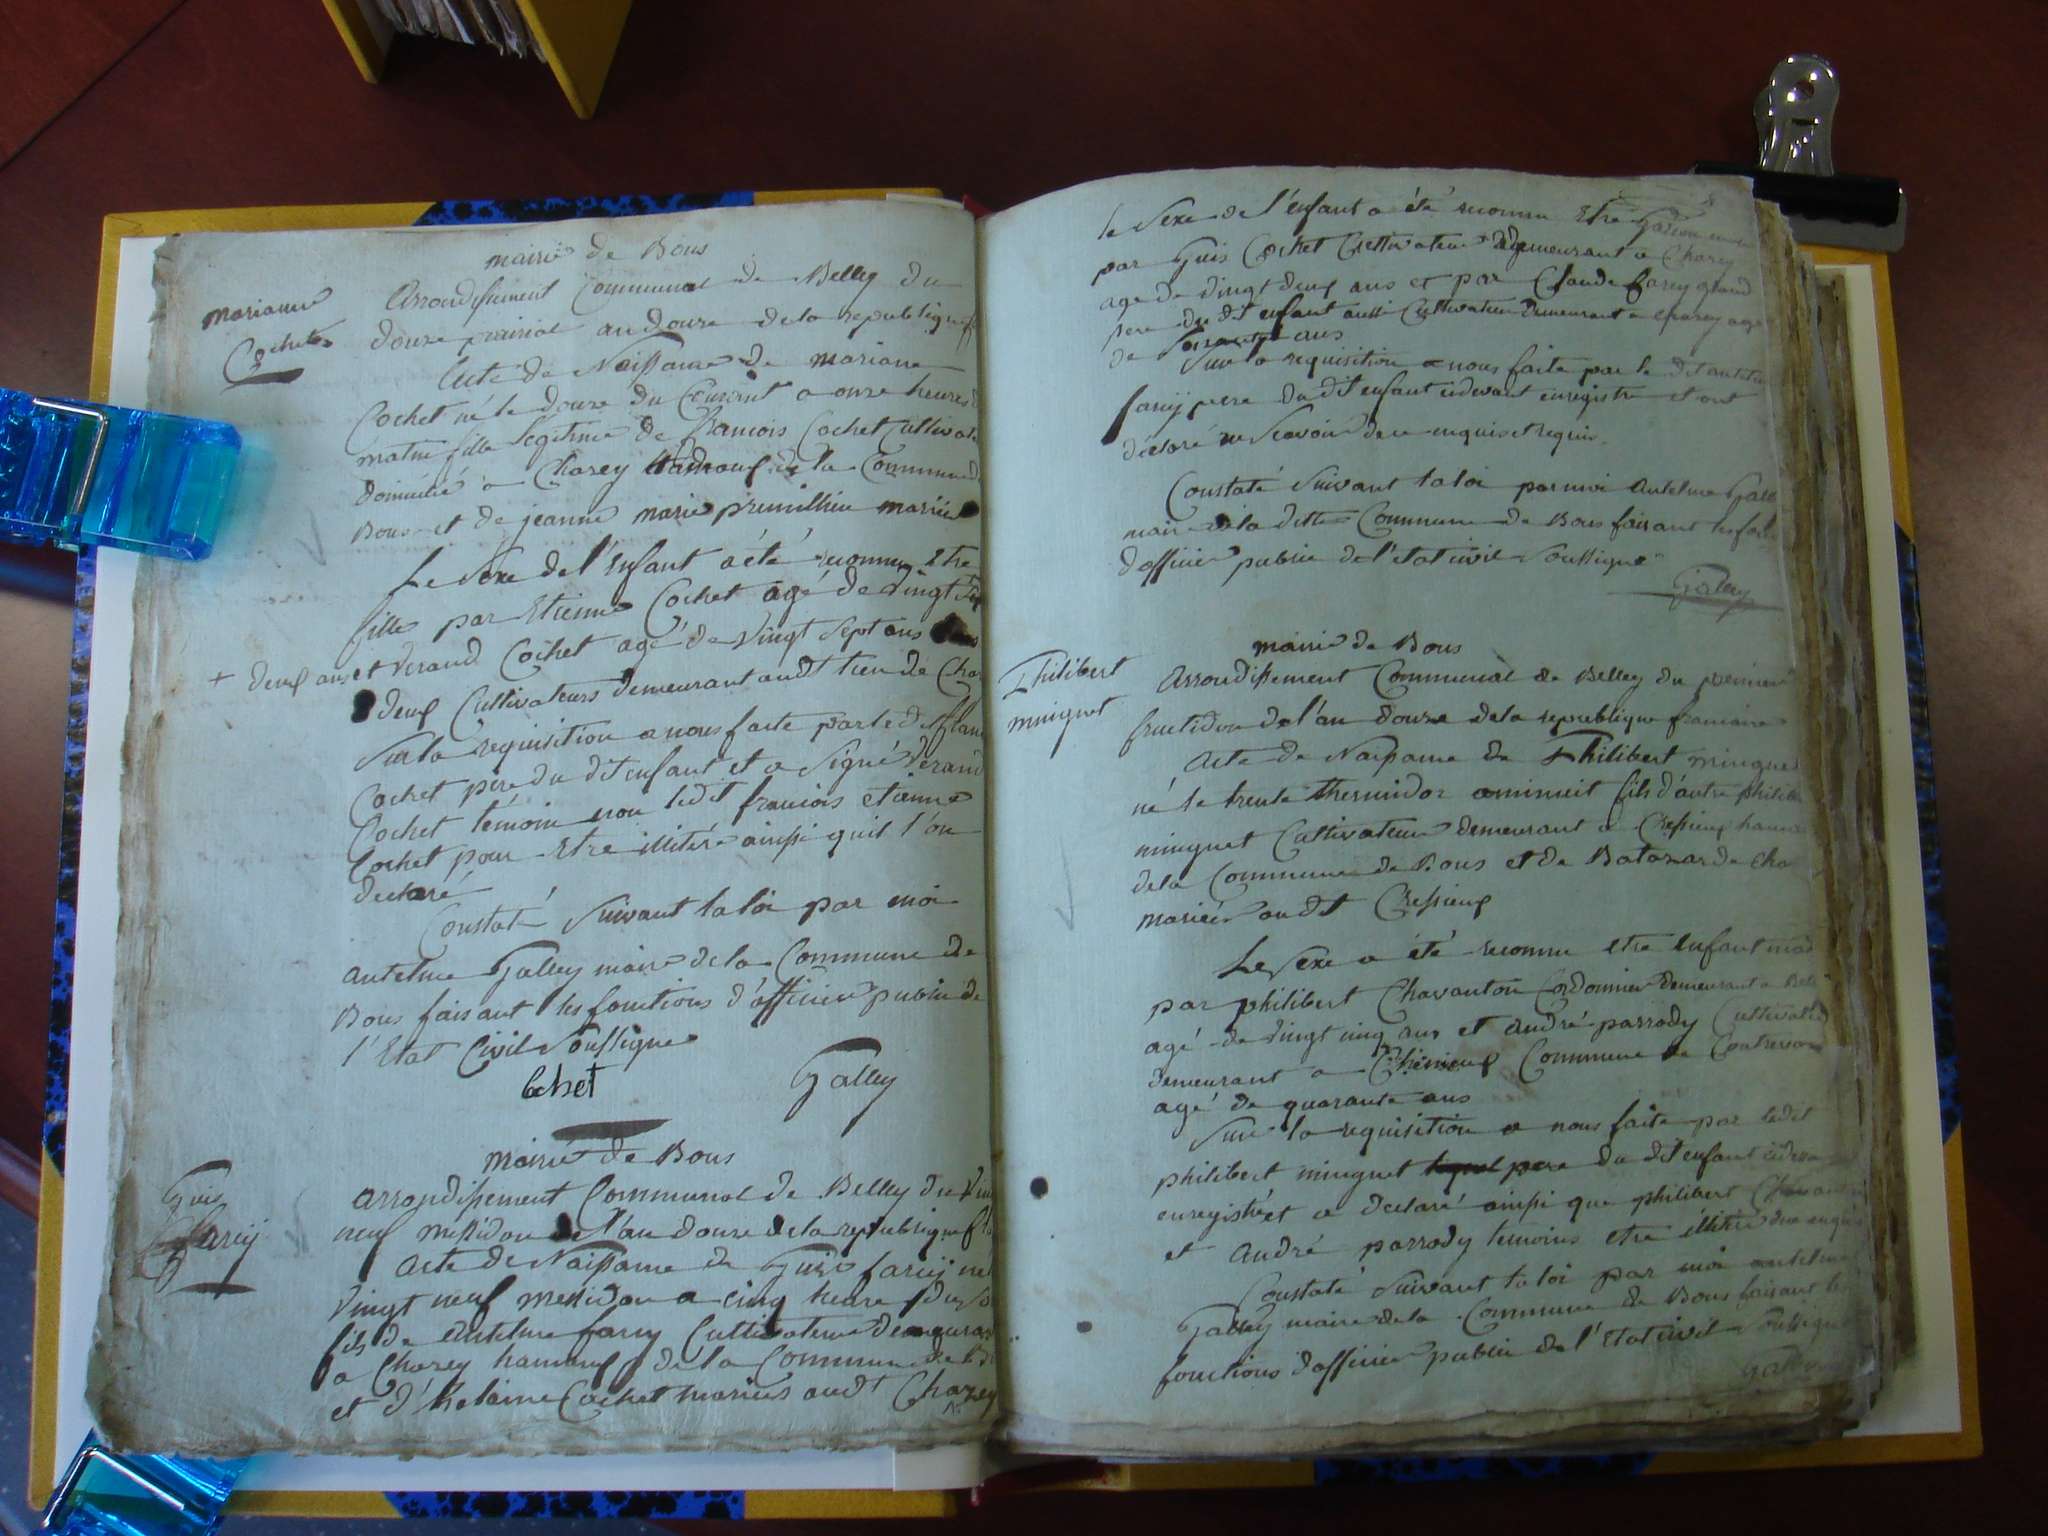 mairie de Bons
mariane
Cochet
Arrondissement Communal de Belley du
douze prairial an douze de la republique
Acte de Naissance de mariane
Cochet né le douze du Courant a onze heures
matin fille legitime de francois Cochet Cultivat
domicilié a Charey hameau de la Commune de
Bons et de jeanne marie premillieu mariés
Le Sexe de l'enfant a été reconnu Etre
fille par Etienne Cochet agé de vingt
+ deux ans et Verand Cochet agé de vingt Sept ans
deux Cultivateurs demeurant audt lieu de Cha
Sur la requisition a nous faite par le dit fran
Cochet pere du dit enfant et a Signé Verand
Cochet témoin non ledit francois etienne
Cochet pour Etre illitéré ainssi quil l'on
declaré
Constaté Suivant la loi par moi
antelme Galley maire de la Commune de
Bons faisant les fonctions d'officier public de
l'Etat Civil Soussigne
Cochet Galley
mairie de Bons
Guis
farcy
arrondissement Communal de Belley du Vin
neuf messidor de l'an douze de la republique f
Acte de Naissance de Guis farcy ne
Vingt neuf messidor a cinq heure du so
fils de Antelme farcy Cultivateur demeuran
a Charey hameau de la Commune de B
et d'helaine Cochet mariés audt Charey
le Sexe de l'enfant a été reconnu Etre Garcon
par Guis Cochet Cultivateur demeurant a Charey
agé de vingt deux ans et par Claude farcy grand
pere du dit enfant aussi Cultivateur Demeurant a Charey age
de soixante ans
Sur la requisition a nous faite par le dit antelm
farcy pere du dit enfant cidevant enregistré et ont
déclaré ne Scavoir de ce enquis et requis
Constaté Suivant la loi par moi Antelme Gall
maire de la ditte Commune de Bons faisant les fo
d'officier public de l'etat civil Soussigne
Galley
mairie de Bons
Philibert
minguet
Arrondissement Communal de Belley du premier
fructidor de l'an douze de la republique francaise
Acte de Naissance de Philibert minguet
né le trente thermidor a minuit fils d'autre philibe
minguet Cultivateur demeurant a Cressieux ham
de la Commune de Bons et de Batazarde Cha
mariés audt Cressieux
Le Sexe a été reconnu etre Enfant mal
par philibert Chavanton Cordonnier demeurant a Bell
agé de vingt cinq ans et andré parrody Cultivateu
demeurant a Commune de Contrevoz
agé de quarante ans
Sur la requisition a nous faite par ledit
philibert minguet pere du dit enfant cidessu
enregistré et a declaré ainssi que philibert Chavant
et André parrody temoins etre illitéré de ce enquis
Constaté Suivant la loi par moi antelme
Galley maire de la Commune de Bons faisant les
fonctions d'officier public de l'Etat civil Soussigné
Galley